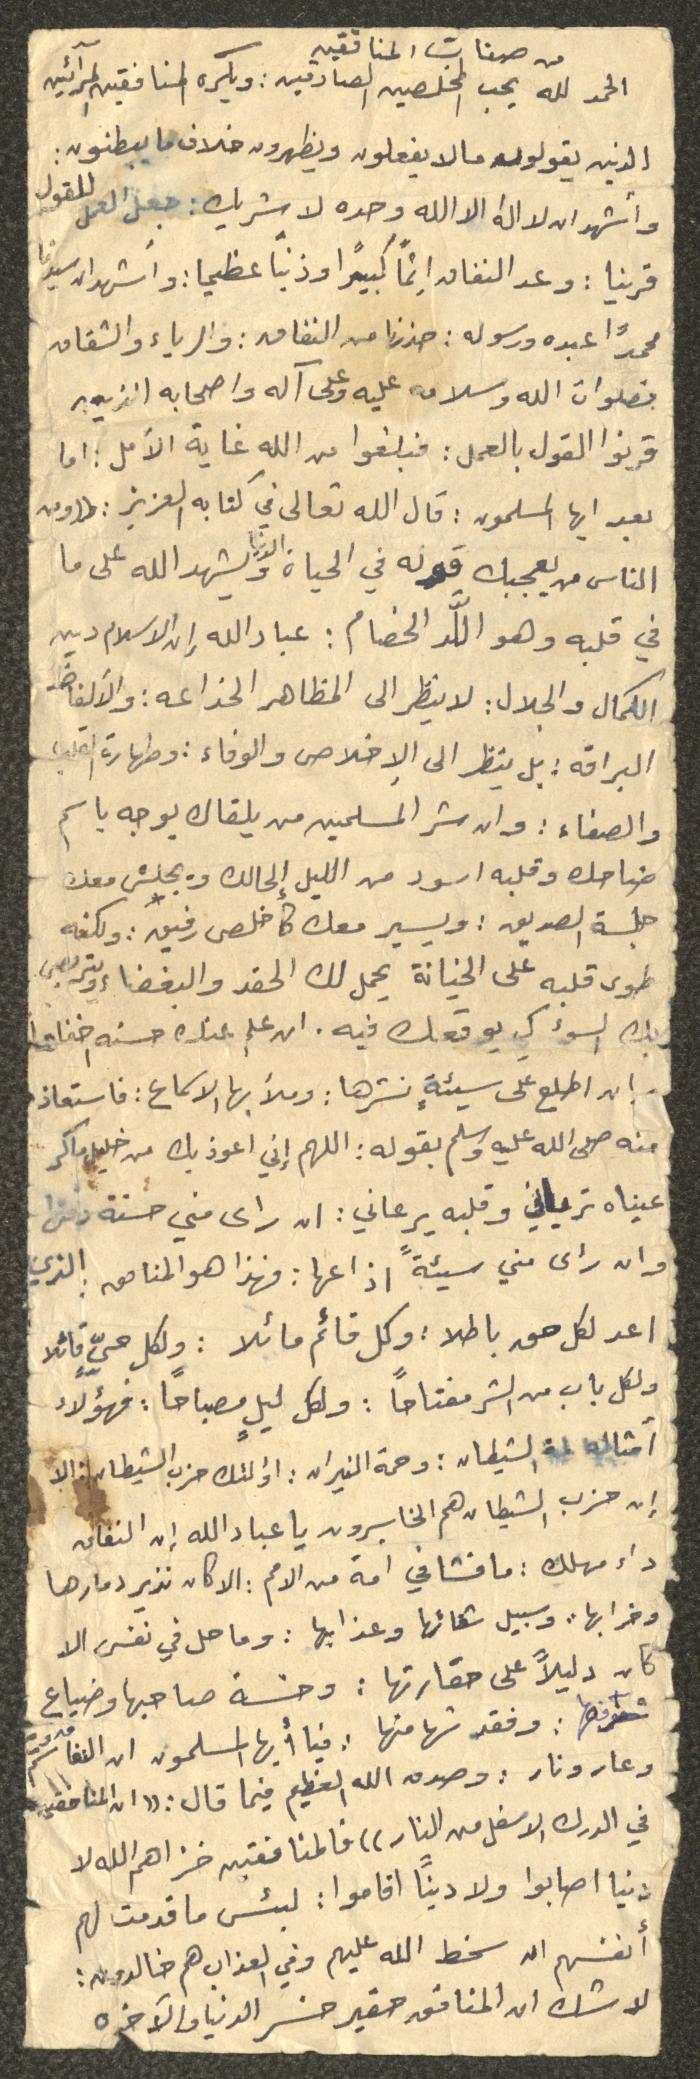 من صفات المنافقين
الحمد لله يحب المخلصين الصادقين : ويكره المنافقين المرآئين
الذين يقولون مالا يفعلون ويظهرون خلاف ما يبطنون :
وأشهد ان لا اله الا الله وحده لا شريك : جعل العمل للقول
قرينا : وعد النفاق اثمًا كبيرًا وذنبًا عظيما : وأشهد ان سيدنا
محمدًا عبده ورسوله : حذرنا من النفاق : والرياء والشقاق
فصلوات الله وسلامه عليه وعلى آله واصحابه الذين
قرنوا القول بالعمل : فبلغوا من الله غاية الأمل : اما
بعد ايها المسلمون : قال الله تعالى في كتابه العزيز : (( ومن
الناس من يعجبك قوله في الحياة الدنيا ويشهد الله على ما
في قلبه وهو ألَّد الخصام : عباد الله إن الاسلام دين
الكمال والجلال : لا ينظر الى المظاهر الخداعه : والألفاظ
البراقه : بل ينظر الى الإخلاص والوفاء : وطهارة القلب
والصفاء : وان شر المسلمين من يلقاك بوجه باسم
ضاحك وقلبه اسود من الليل الحالك ويجلس معك
جلسة الصديق : ويسير معك كأخلص رفيق : ولكنه
طوى قلبه على الخيانة يحمل لك الحقد والبغضاء ويتربص
بك السوء كي يوقعك فيه . ان علم عنك حسنه اخفاها
وان اطلع على سيئةٍ نشرها : وملأ بها الاسماع : فاستعاذ
منه صلى الله عليه وسلم بقوله : اللهم إني اعوذ بك من خليل ماكر
عيناه ترياني وقلبه يرعاني : ان راى مني حسنة دفنها
وان راى مني سيئةً اذاعها : فهذا هو المنافق : الذي
اعد لكل حق باطلا : وكل قائم مائلا : ولكل حيٍّ قاتلا
ولكل باب من الشر مفتاحًا : ولكل ليلٍ مصباحًا : فهؤلاء
أمثاله لمة الشيطان : وحمة النيران : اولئك حزب الشيطان : الا
إن حزب الشيطان هم الخاسرون يا عباد الله إن النفاق
داء مهلك : ما فشا في امة من الامم : الا كان نذير دمارها
وخرابها : وسبيل شقائها وعذابها : وما حل في نفس الا
كان دليلاً على حقارتها : وخسة صاحبها وضياع
شرفها : وفقد شهامتها : فيا أيها المسلمون ان النفاق
وعار ونار : وصدق الله العظيم فيما قال : (( ان المنافقين
في الدرك الاسفل من النار )) فالمنافقين خزاهم الله لا
دنيا اصابوا ولا دينًا اقاموا : لبئس ما قدمت لهم
أنفسهم ان سخط الله عليهم وفي العذاب هم خالدون :
لا شك ان المنافق حقير خسر الدنيا والآخره